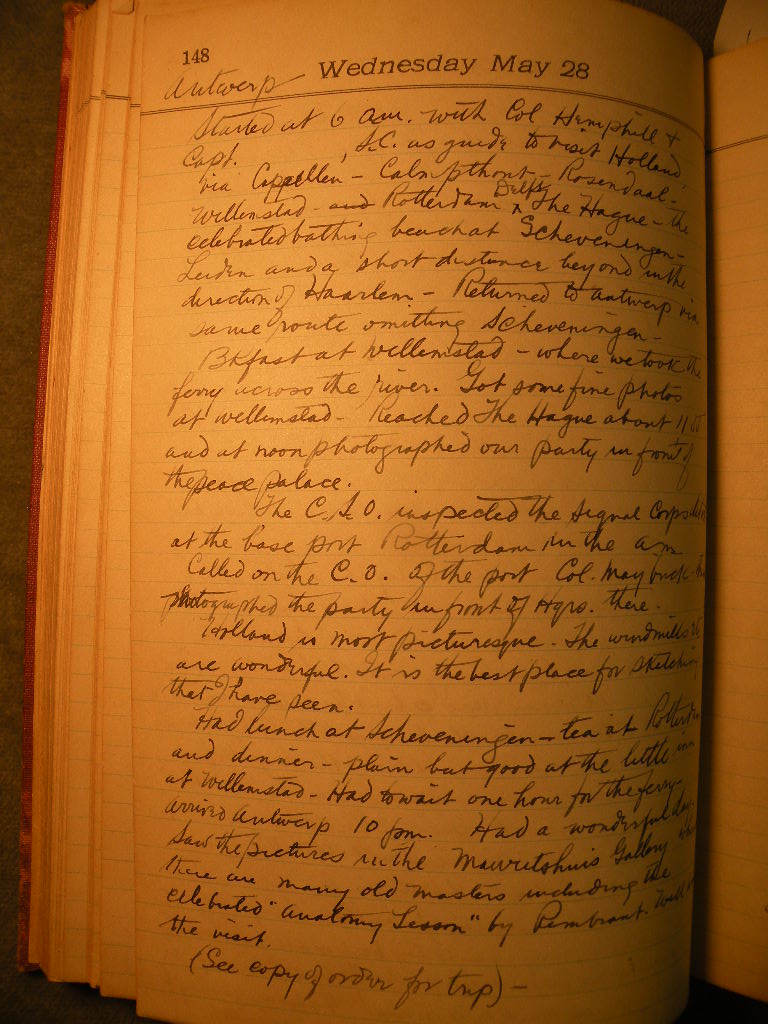 148
Wednesday May 28
Antwerp
Started at 6 am. with Col Hemphill +
Capt. , S.C. as guide to visit Holland
via Cappellen - Calmpthout - Rosendaal -
Willemstad - and Rotterdam Delft The Hague - the
celebrated bathing beach at Scheveningen -
Leiden and a short distance beyond in the
direction of Haarlem - Returned to Antwerp via
same route omitting Scheveningen -
Bkfast at Willemstad - where we took the
ferry across the river. Got some fine photos
at Willemstad - Reached The Hague about 11
and at noon photographed our party in front of
the peace palace.
The C.S.O. inspected the Signal Corps
at the base port Rotterdam in the am
Called on the C.O. of the port Col. Maybuck -
photographed the party in front of Hqrs. there.
Holland is most picturesque - The windmills
are wonderful. It is the best place for sketching
that I have seen.
Had lunch at Scheveningen - tea at Rotterdam
and dinner - plain but good at the little inn
at Willemstad - Had to wait one hour for the ferry -
arrived Antwerp 10 pm. Had a wonderful day.
Saw the pictures in the Mauritshuis Gallery
there are many old masters including the
celebrated "Anatomy Lesson" by Rembrant.
the visit.
(See copy of order for trip) -